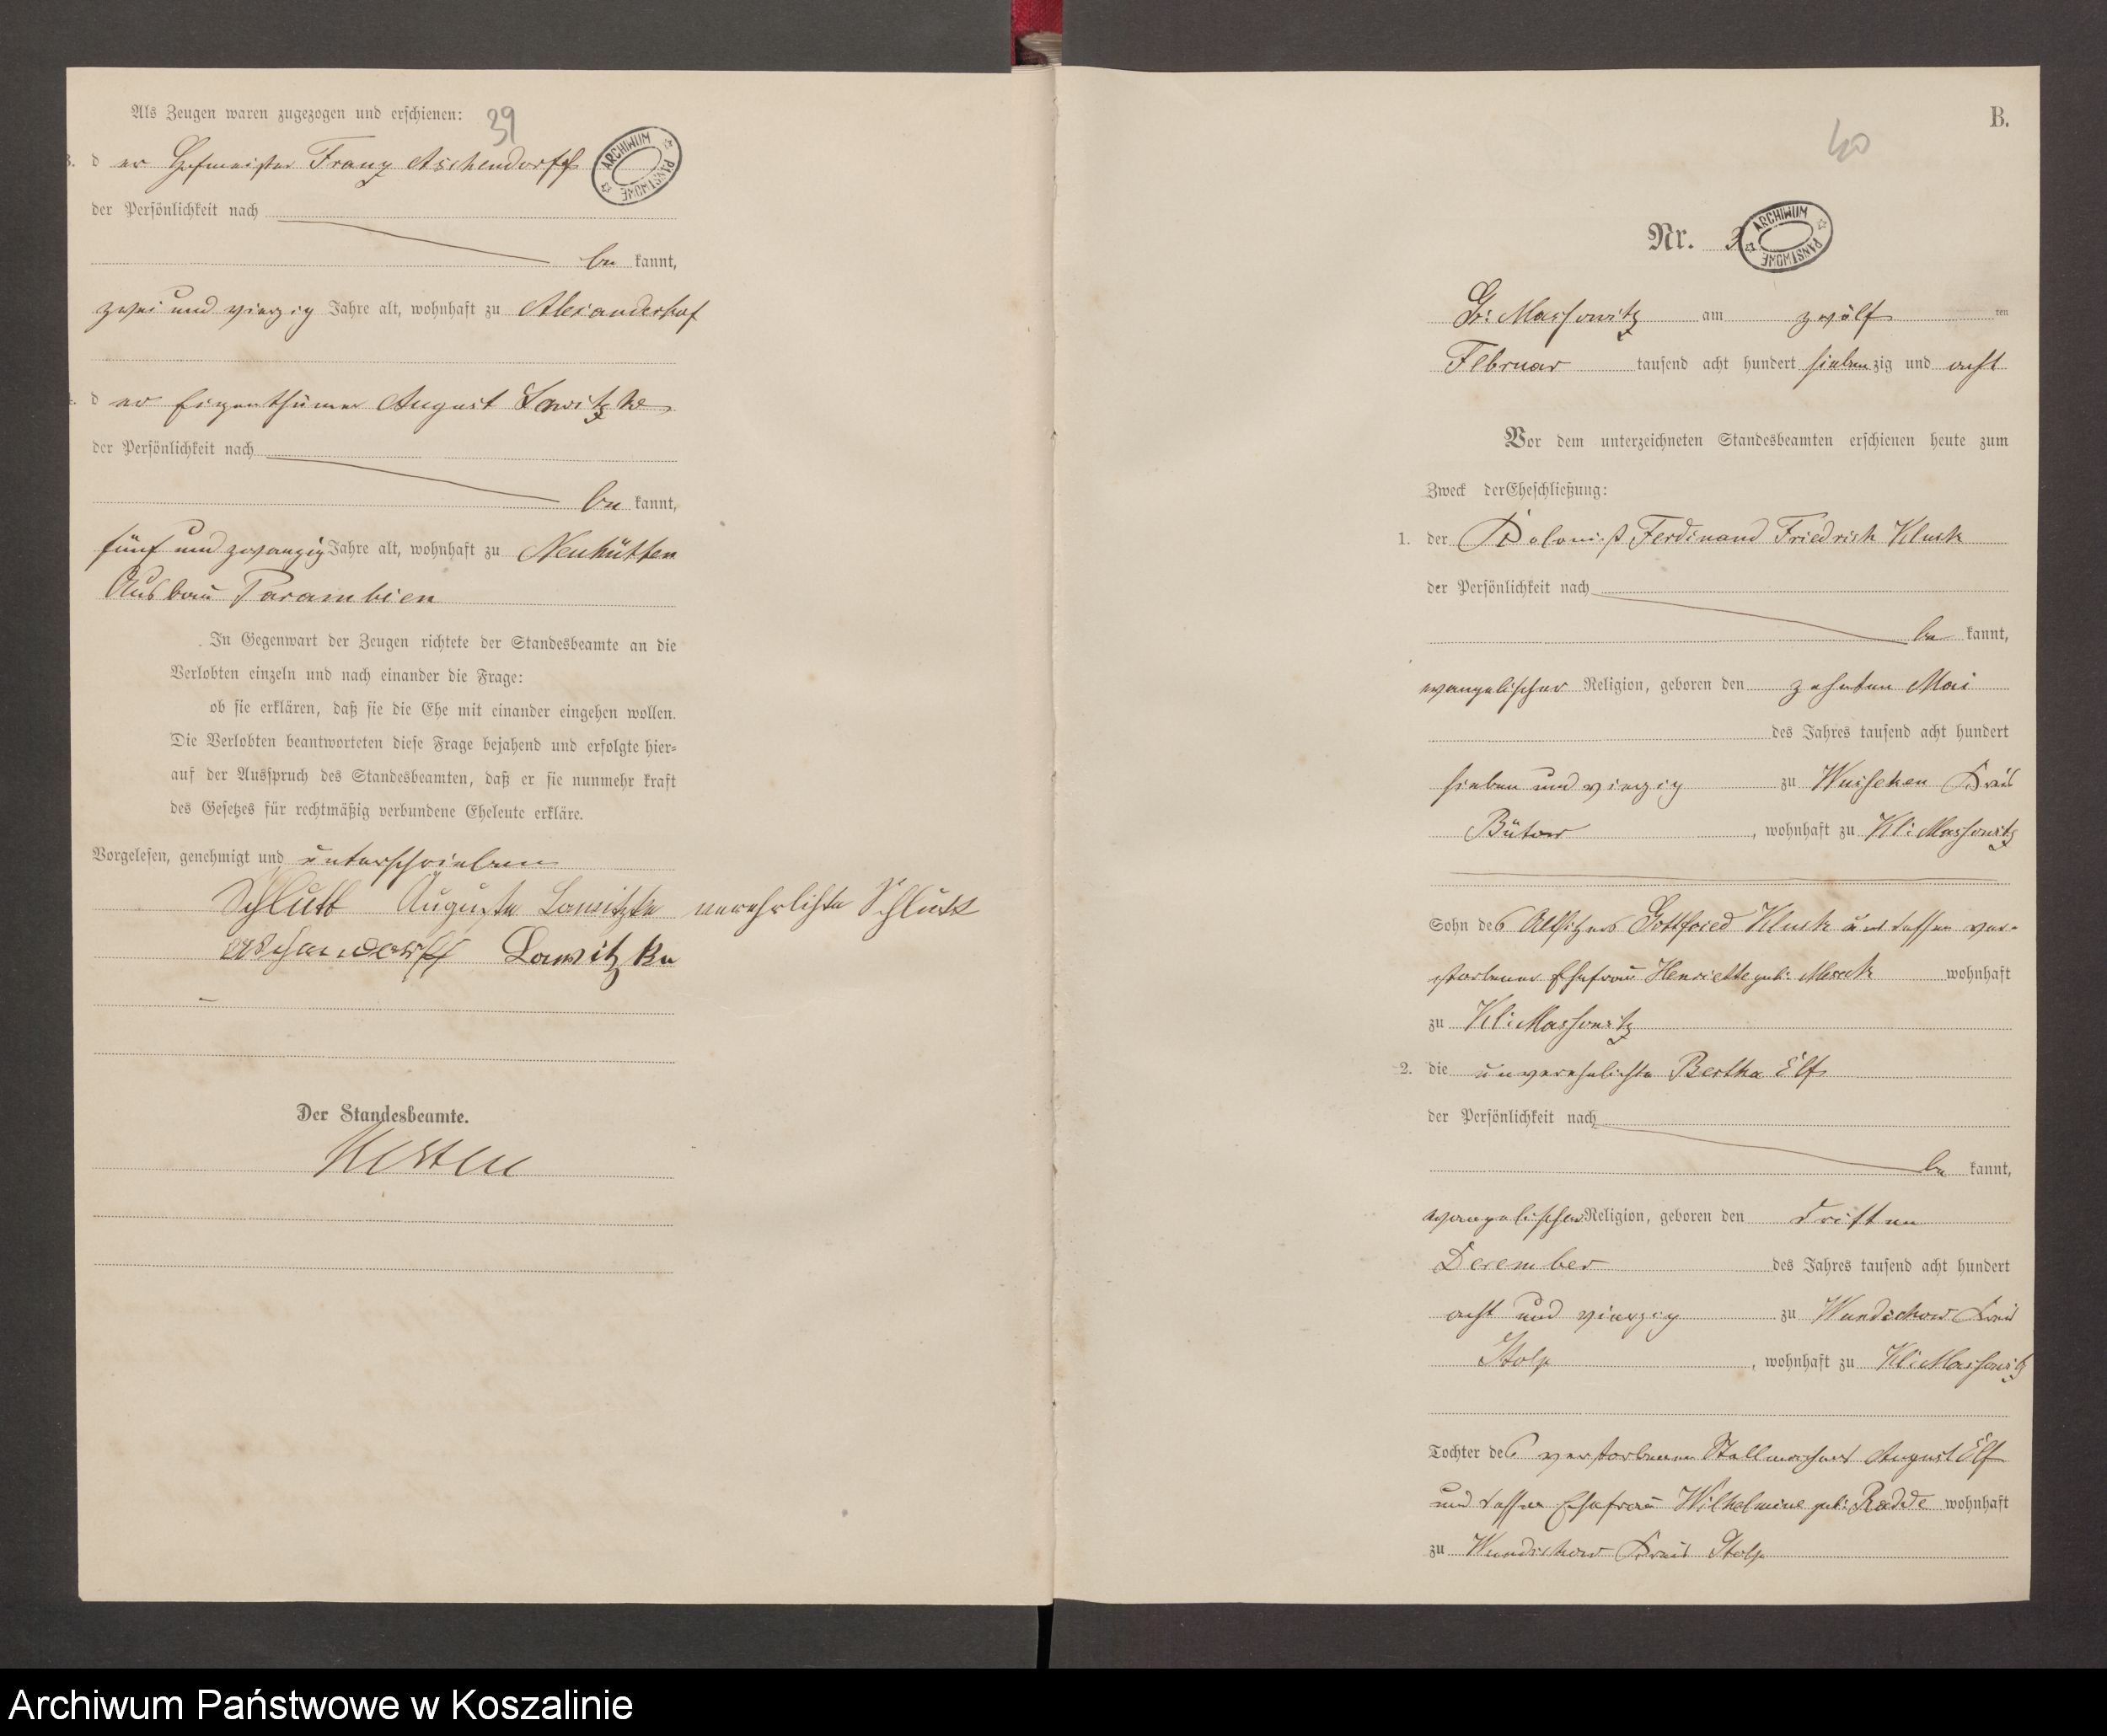 39
Als Zeugen waren zugezogen und erschienen:
3. der Hofmeister Franz Aschendorff
ARCHIWUM PAŃSTWOWE
der Persönlichkeit nach
be kannt,
zwei und vierzig Jahre alt, wohnhaft zu Alexanderhof
der Eigenthümer August Lawitzke
der Persönlichkeit nach
be kannt,
fünf und zwanzig Jahre alt, wohnhaft zu Neuhütten
Ausbau Parambien
In Gegenwart der Zeugen richtete der Standesbeamte an die
Verlobten einzeln und nach einander die Frage:
ob sie erklären, daß sie die Ehe mit einander eingehen wollen.
Die Verlobten beantworteten diese Frage bejahend und erfolgte hier=
auf der Ausspruch des Standesbeamten, daß er sie nunmehr kraft
des Gesetzes für rechtmäßig verbundene Eheleute erkläre.
Vorgelesen, genehmigt und unterschrieben
Schlutt Auguste Lawitzke verehelichte Schlutt
Aschendorff Lawitzke
Der Standesbeamte.
B.
40
Nr.
ARCHIWUM PAŃSTWOWE
Gr: Massowitz am zwölf ten
Februar tausend acht hundert siebenzig und acht
Vor dem unterzeichneten Standesbeamten erschienen heute zum
Zweck der Eheschließung:
1. der Kolonist Ferdinand Friedrich Kluck
der Persönlichkeit nach
be kannt,
evangelischer Religion, geboren den zehnten Mai
des Jahres tausend acht hundert
sieben und vierzig zu Wusseken Kreis
Bütow, wohnhaft zu Kl: Massowitz
Sohn des Altsitzers Gottfried Kluck und dessen ver-
storbener Ehefrau Henriette geb: wohnhaft
zu Kl: Massowitz
2. die unverehelichte Bertha Elf
der Persönlichkeit nach
be kannt,
evangelischer Religion, geboren den dritten
December des Jahres tausend acht hundert
acht und vierzig zu Wundichow Kreis
Stolp, wohnhaft zu Kl: Massowitz
Tochter des verstorbenen Stellmachers August Elf
und dessen Ehefrau Wilhelmine geb: Radde wohnhaft
zu Wundichow Kreis Stolp
Archiwum Państwowe w Koszalinie